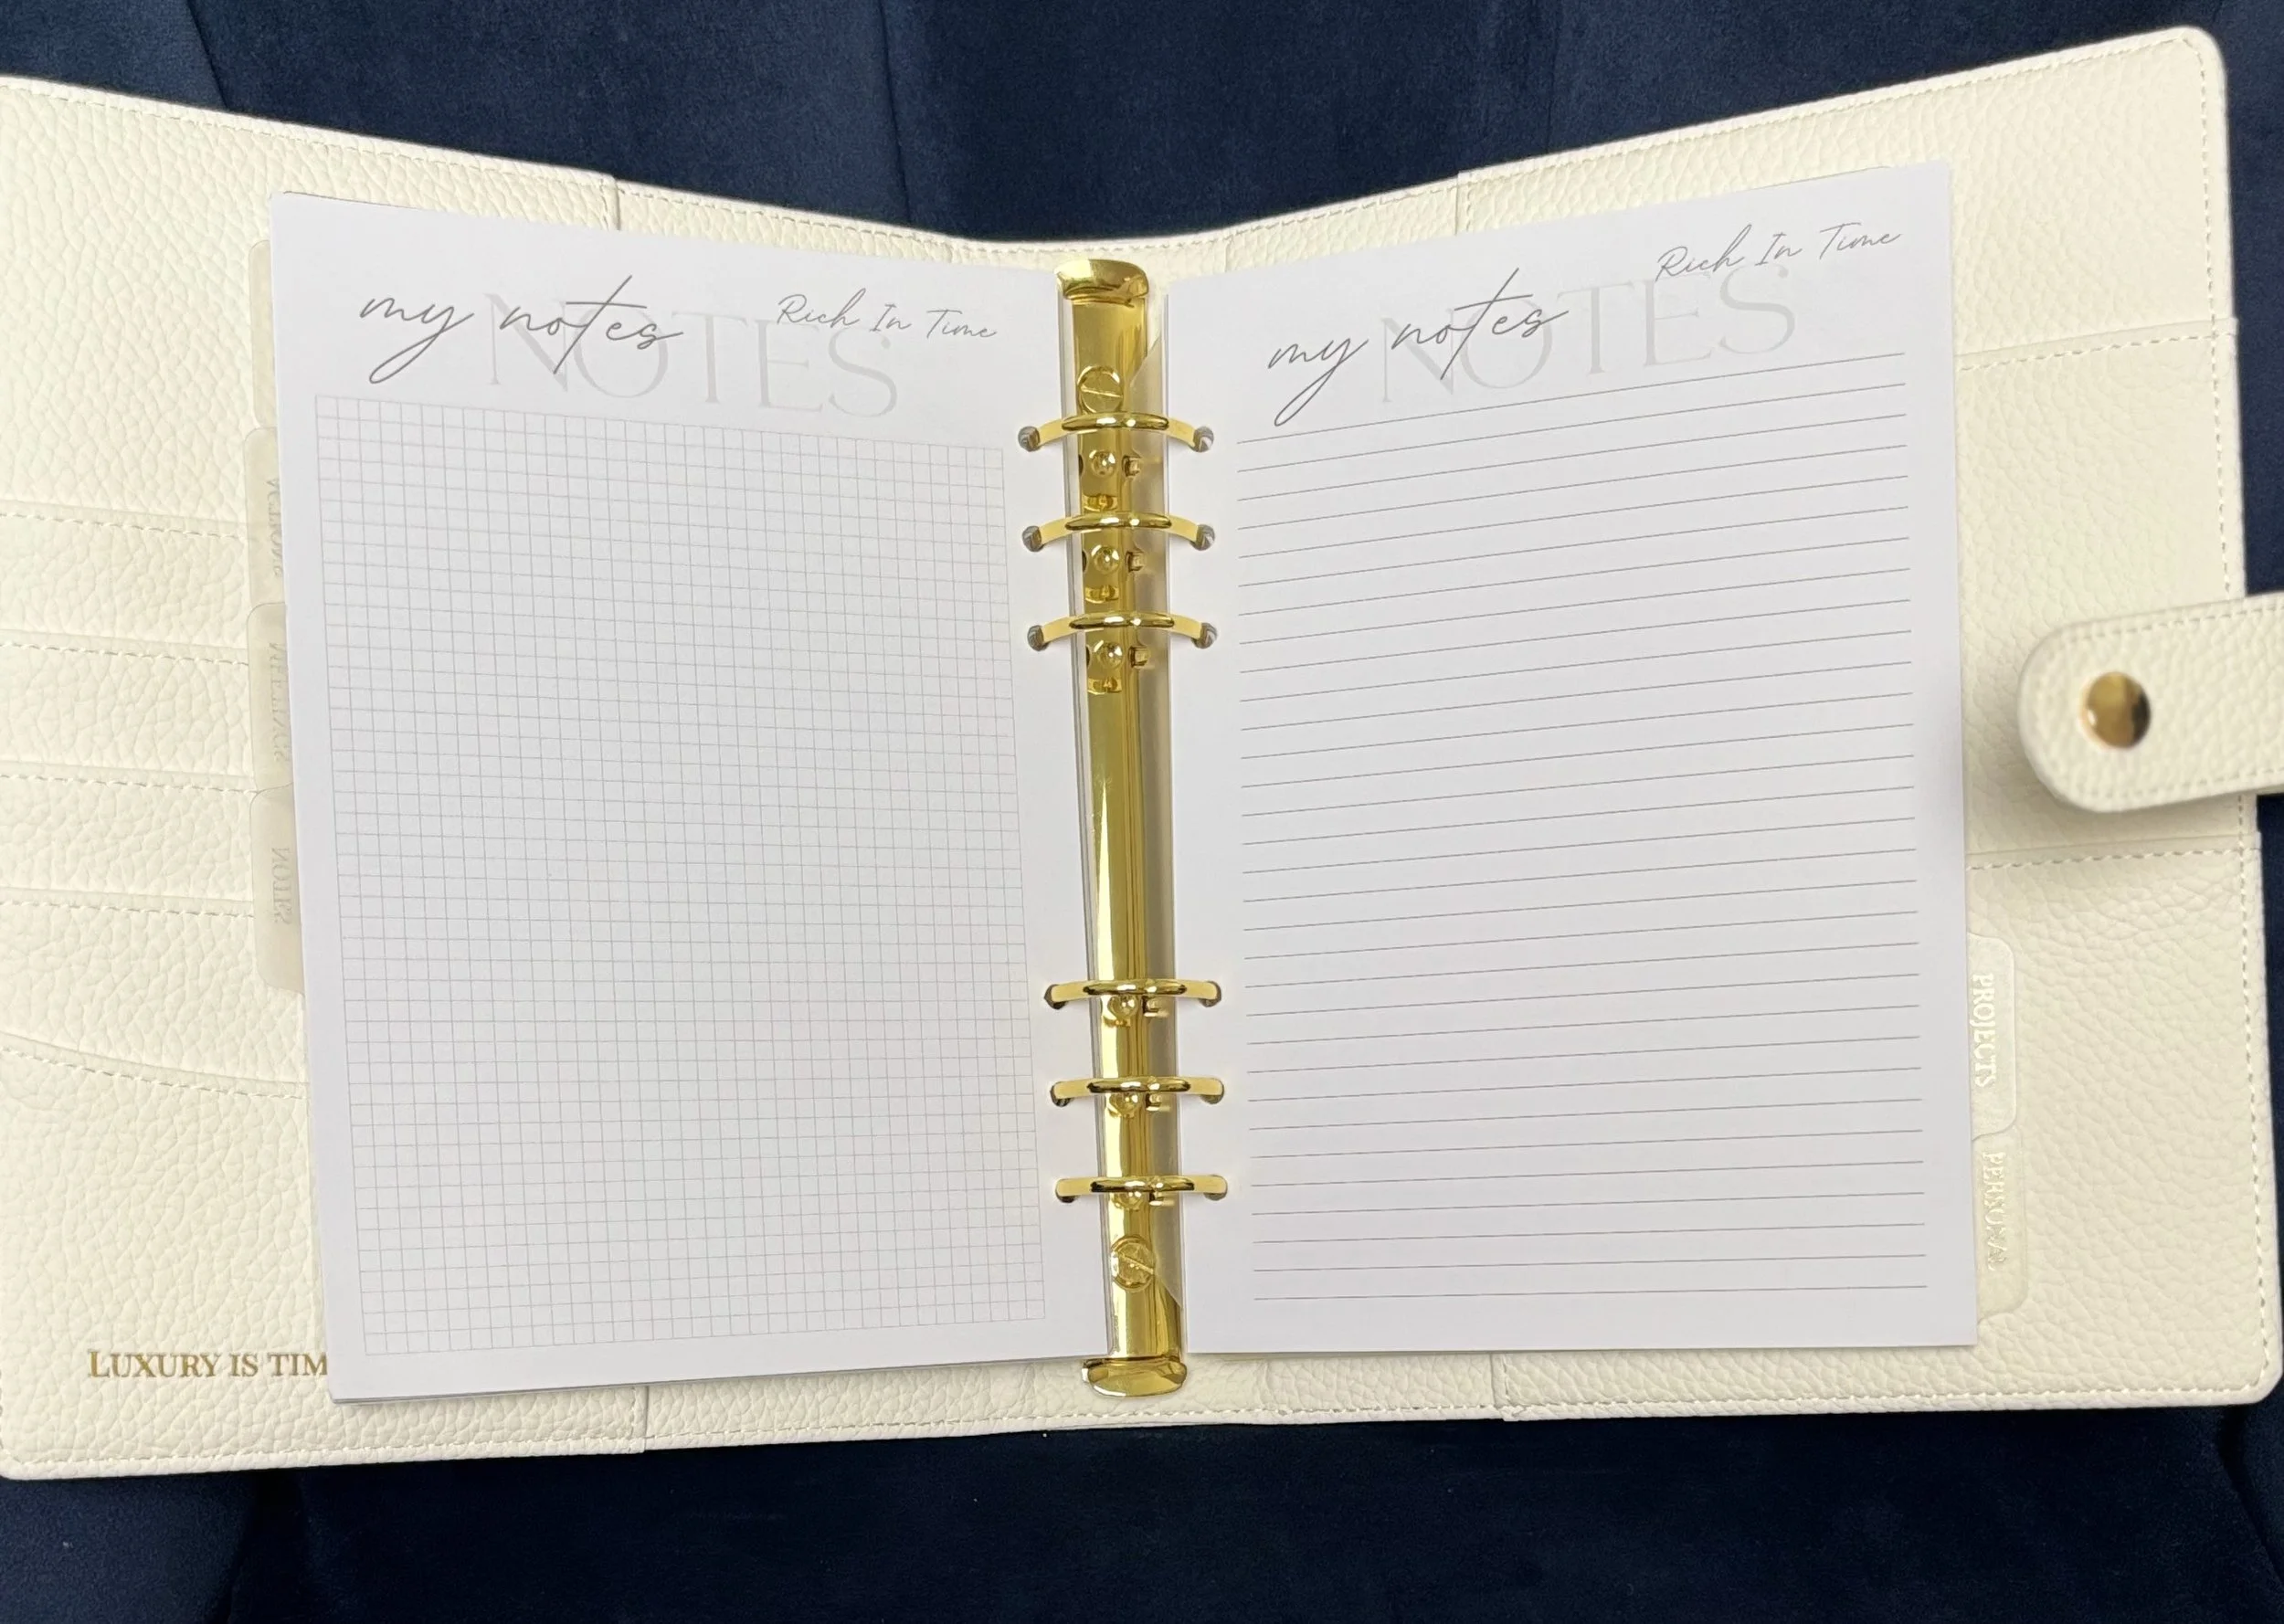 my notes
NOTES
Rich In Time
my notes
NOTES
Rich In Time
NOTES
PROJECTS
PERSONAL
LUXURY IS TIM